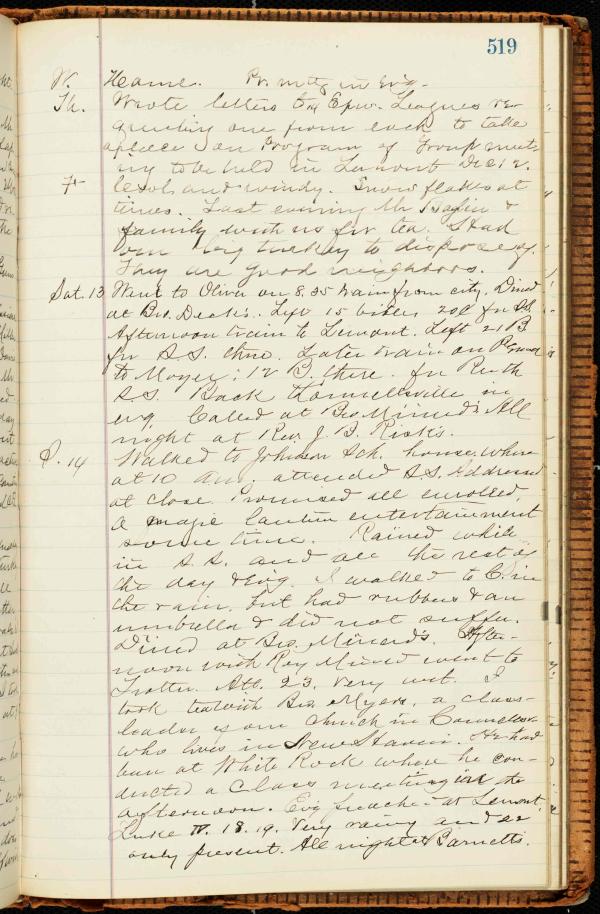 519
W. Home. Pr. mtg in Ev'g.
Th. Wrote letters to Epw. Leagues re-
questing one from each to take
a place on Program of Group meet-
ing to be held in Lemont Dec 12.
F. Cool and windy. Snow flakes at
times. Last evening Mr & family with us for tea. Had
our big turkey to dispose of.
They are good neighbors.
Sat. 13 Went to Oliver on 8.35 train from city. Dined
at Bro. Deck's. Left 15 200 for S.S.
Afternoon train to Lemont. Left 21 B.
for S.S. there. Later train on
to Moyer; 12 B. there. for
S.S. Back Connellsville in
evg. Called at Bro. Minerd's All
night at Rev. J. B. Risk's.
S. 14 Walked to Johnson Sch. house, where
at 10 am, attended S.S. Addressed
at close. Promised all enrolled,
a magic lantern entertainment
some time. Rained while
in S.S. and all the rest of
the day & Evg. I walked to C. in
the rain, but had rubbers & an
umbrella & did not suffer.
Dined at Bro. Minerd's. After-
noon with Ray Minerd went to
Trotter. Att. 23. Very wet. I
took tea with Bro. Myers, a class-
leader is our church in Connellsv.
who lives in New Haven. He had
been at White Rock where he con-
ducted a Class meeting in the
afternoon. Evg preached at Lemont.
Luke IV. 18.19. Very rainy and 22
only present. All night at Barnetts.